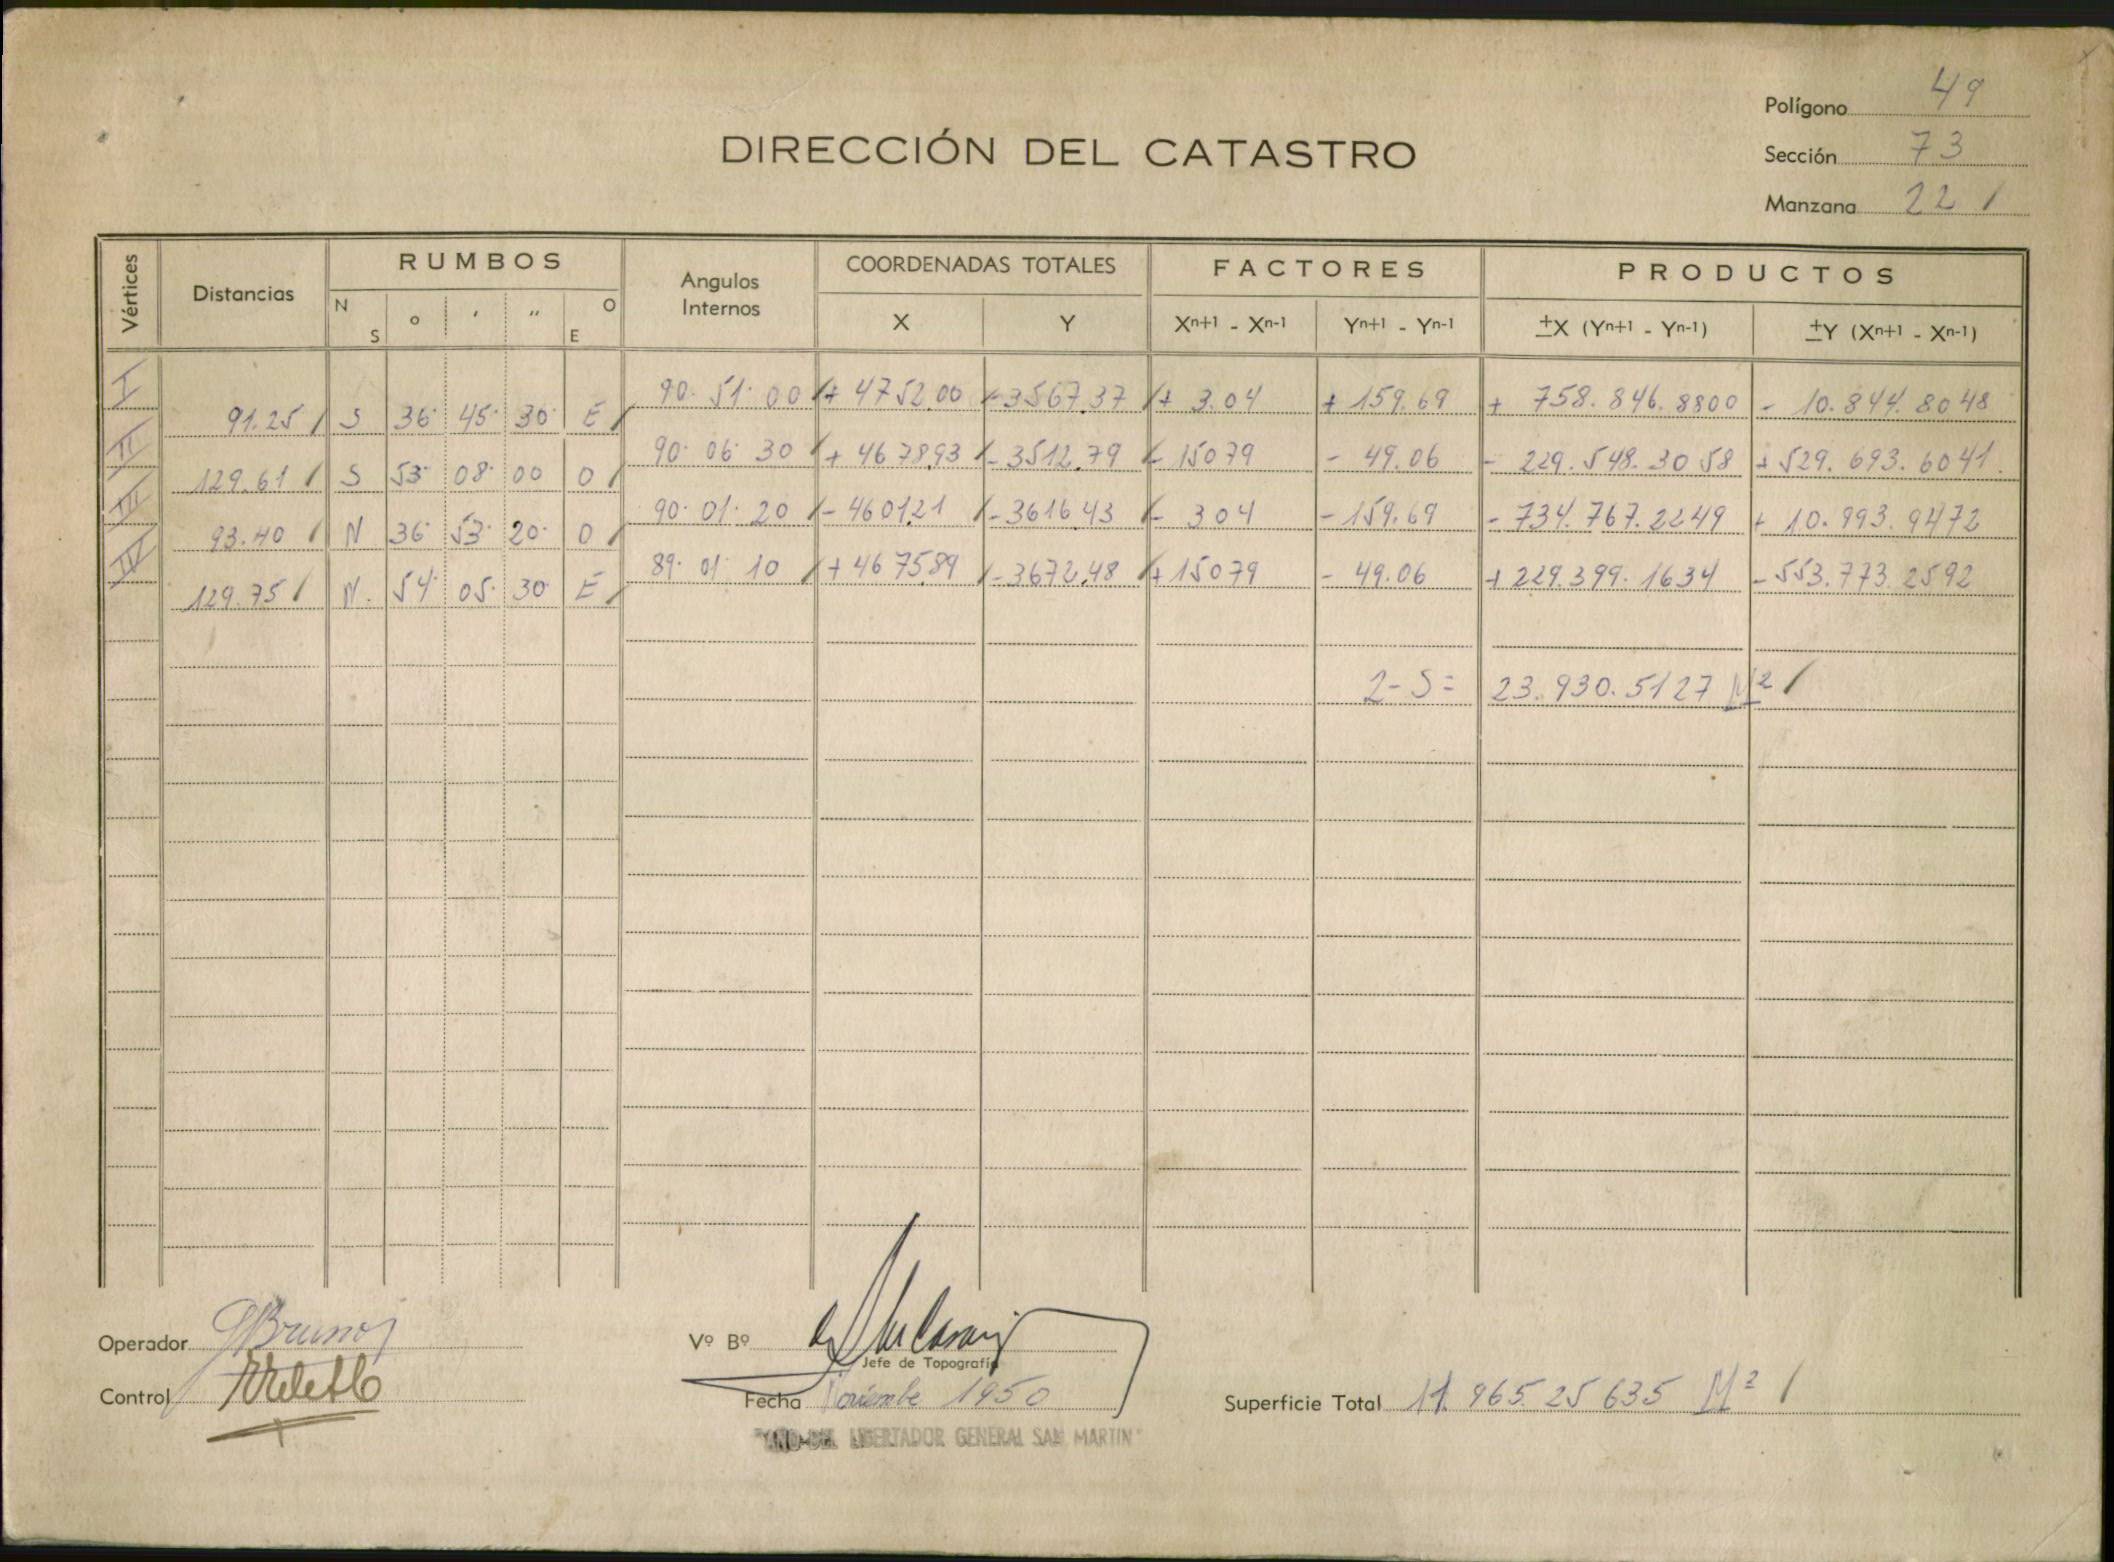 Polígono 49
DIRECCIÓN DEL CATASTRO
Sección 73
Manzana 22 /
Vértices Distancias RUMBOS Angulos Internos COORDENADAS TOTALES FACTORES PRODUCTOS
N S o ' " O E X Y Xn+1 - Xn-1 Yn+1 - Yn-1 ±X (Yn+1 - Yn-1) ±Y (Xn+1 - Xn-1)
I 90. 51. 00 / + 4752.00 / - 3567.37 / + 3.04 + 159.69 + 758.846.8800 - 10.844.8048
91.25 / S 36. 45. 30. E /
II 90. 06. 30 / + 467893 / - 3512.79 / - 15079 - 49.06 - 229.548.3058 + 529.693.6041.
129.61 / S 53. 08. 00 O /
III 90. 01. 20 / - 460121 / - 3616 43 / - 304 - 159.69 - 734.767.2249 + 10.993.9472
93.40 / N 36. 53. 20. O /
IV 89. 01. 10 / + 467589 / - 3672.48 / + 15079 - 49.06 + 229.399.1634 - 553.773.2592
129.75 / N. 54. 05. 30. E /
2-S= 23.930.5127 M² /
Operador GBruno
Vº Bº
Jefe de Topografía
Control
Fecha Noviembre 1950
Superficie Total 11.965.25 635 M² /
"AÑO DEL LIBERTADOR GENERAL SAN MARTIN"